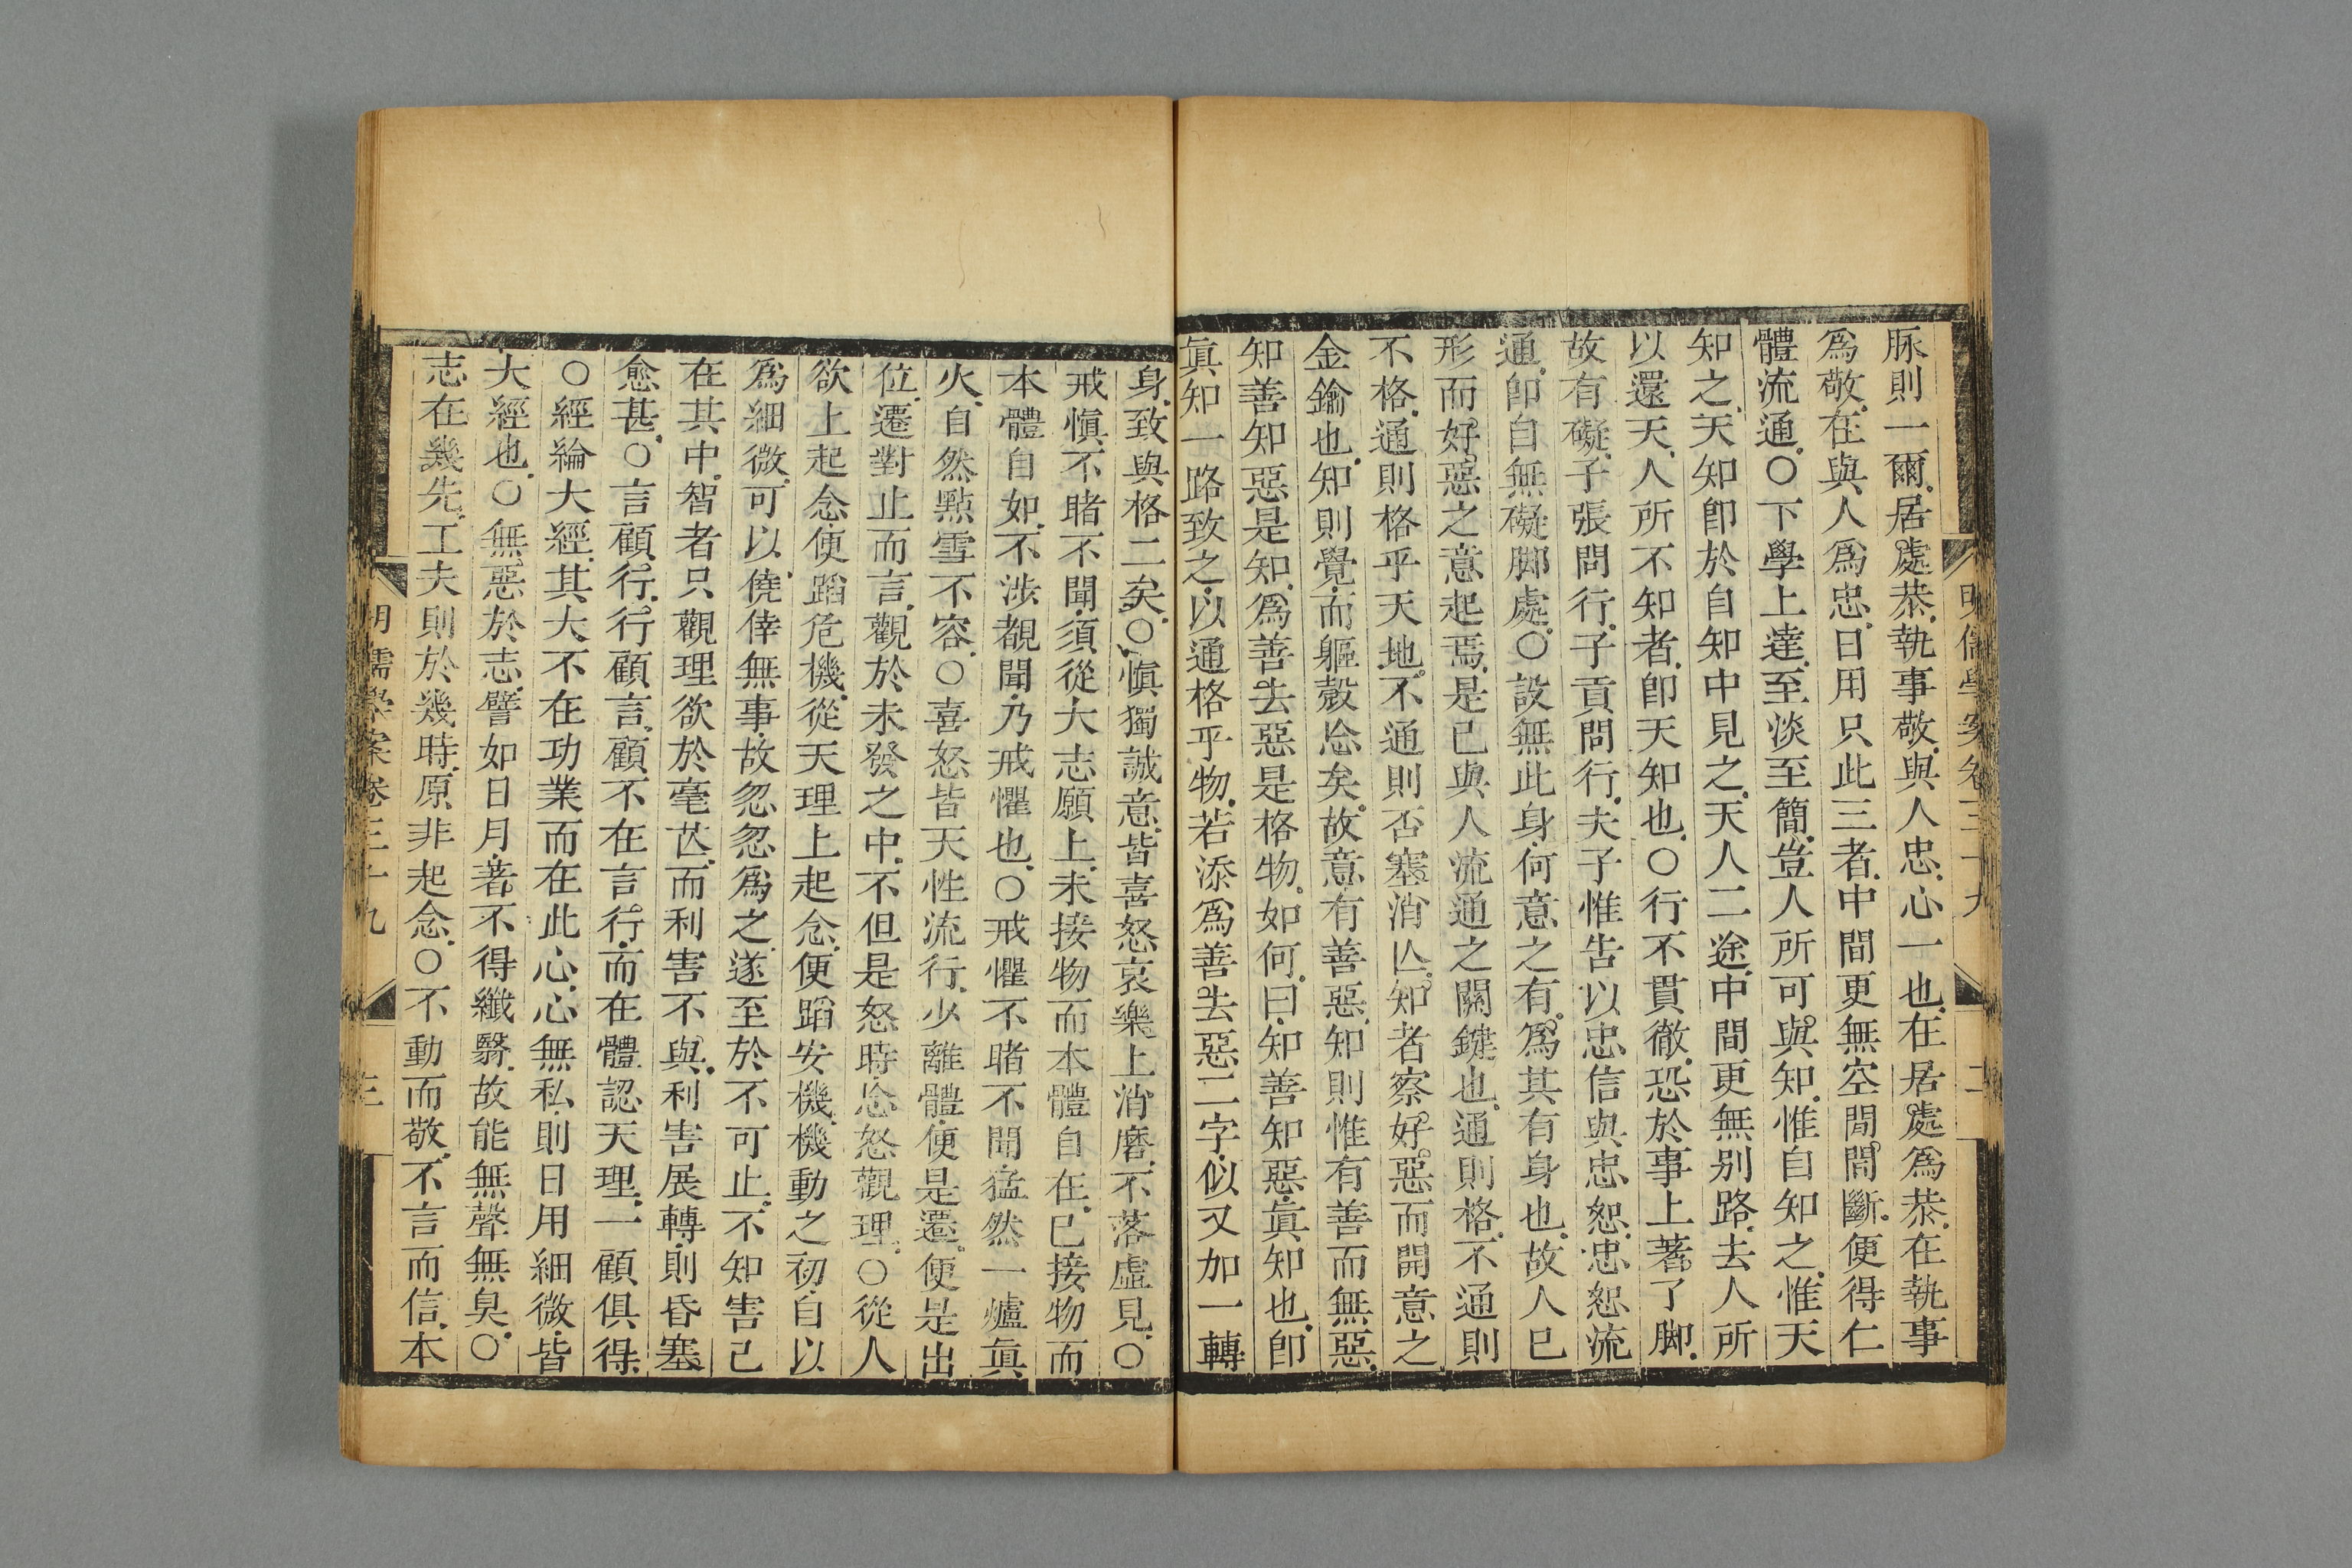 脉則一爾居處恭執事敬與人忠心一也在居處爲恭在執事
爲敬在與人爲忠日用只此三者中間更無空閒間斷便得仁
體流通○下學上達至淡至簡豈人所可與知惟自知之惟天
知之天知卽於自知中見之天人二途中間更無別路去人所
以還天人所不知者卽天知也○行不貫徹恐於事上著了脚
故有礙子張問行子貢問行夫子惟告以忠信與忠恕忠恕流
通卽自無礙脚處○設無此身何意之有爲其有身也故人已
形而好惡之意起焉是已與人流通之關鍵也通則格不通則
不格通則格乎天地不通則否塞消亾知者察好惡而開意之
金鑰也知則覺而軀殼忩矣故意有善惡知則惟有善而無惡
知善知惡是知爲善去惡是格物如何曰知善知惡眞知也卽
眞知一路致之以通格乎物若添爲善去惡二字似又加一轉
身致與格二矣○愼獨誠意皆喜怒哀樂上消磨不落虛見○
戒愼不睹不聞須從大志願上未接物而本體自在已接物而
本體自如不涉覩聞乃戒懼也○戒懼不睹不聞猛然一爐眞
火自然點雪不容○喜怒皆天性流行少離體便是遷便是出
位遷對止而言觀於未發之中不但是怒時忩怒觀理○從人
欲上起念便蹈危機從天理上起念便蹈安機機動之初自以
爲細微可以僥倖無事故忽忽爲之遂至於不可止不知害已
在其中智者只觀理欲於毫芒而利害不與利害展轉則昏塞
愈甚○言顧行行顧言顧不在言行而在體認天理一顧俱得
○經綸大經其大不在功業而在此心心無私則日用細微皆
大經也○無惡於志譬如日月著不得纖翳故能無聲無臭○
志在幾先工夫則於幾時原非起念○不動而敬不言而信本
明儒學案卷三十九
二
明儒學案卷三十九
三